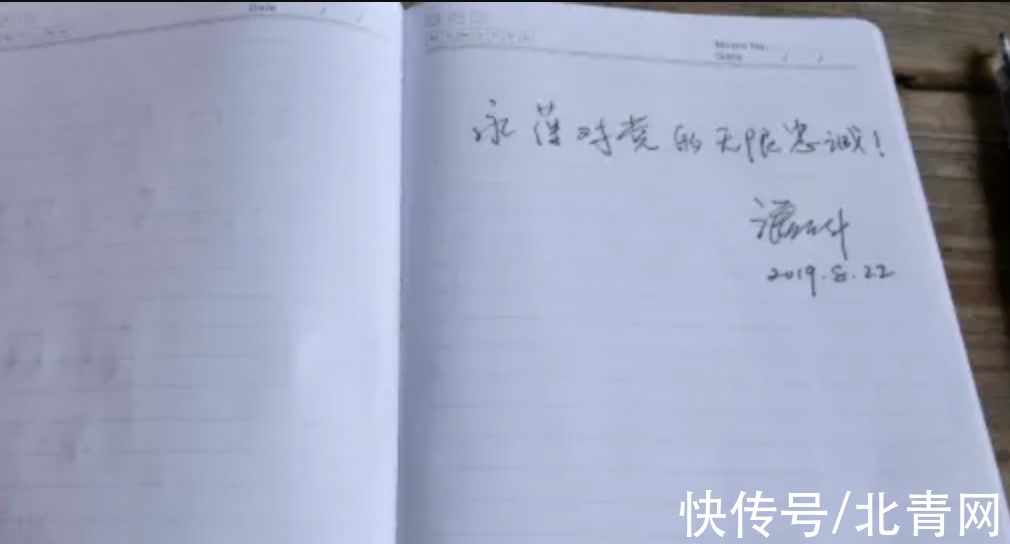 Date / /
Memo No.
Date / /
永葆对党的无限忠诚!
2019.8.22
快传号/北青网